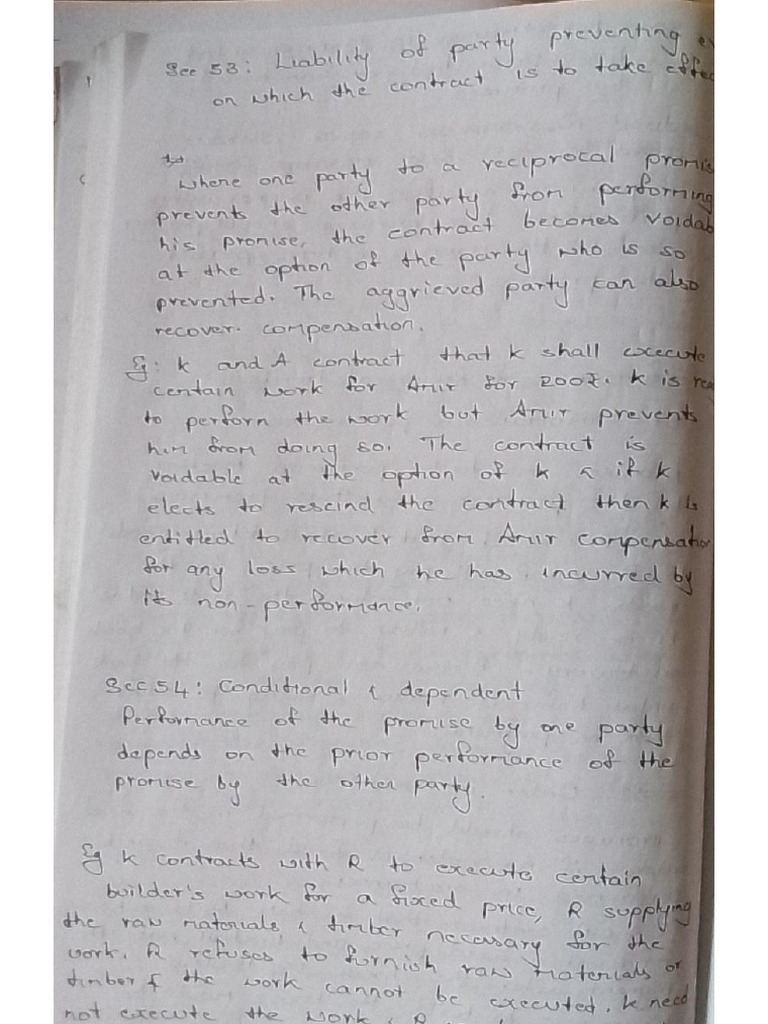 Sec 53: Liability of party preventing
on which the contract is to take effec
Where one party to a reciprocal promis
prevents the other party from performing
his promise, the contract becomes voidab
at the option of the party who is so
prevented. The aggrieved party can also
recover compensation.
Eg: K and A contract that K shall execute
certain work for Amir for 200₹. K is rea
to perform the work but Amir prevents
him from doing so. The contract is
voidable at the option of K & if K
elects to rescind the contract then K is
entitled to recover from Amir compensation
for any loss which he has incurred by
its non-performance.
Sec 54: Conditional & dependent
Performance of the promise by one party
depends on the prior performance of the
promise by the other party.
Eg K contracts with R to execute certain
builder's work for a fixed price, R supplying
the raw materials & timber necessary for the
work. R refuses to furnish raw materials or
timber & the work cannot be executed. K need
not execute the work & R